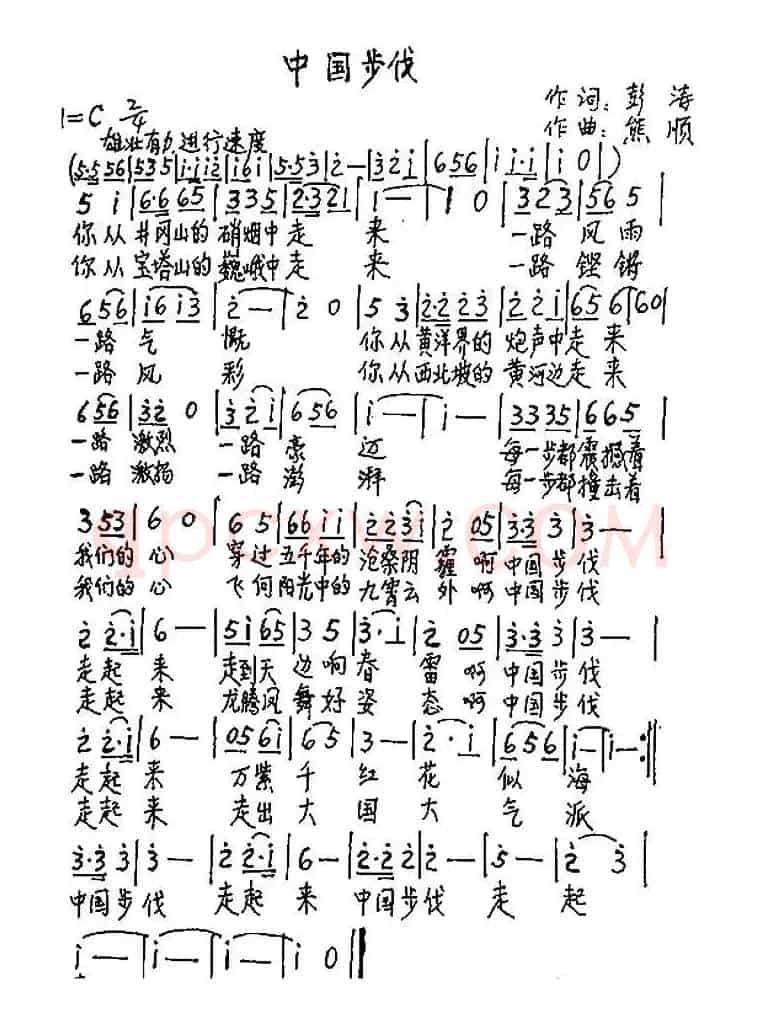 中国步伐
作词：彭涛
1=C 2/4
作曲：熊顺
雄壮有力 进行速度
(5·5 56 | 535 | i·i i2̇ | i6i | 5·5 3̇ | 2̇ — | 3̇2̇i | 656 | i i·i | i 0 )
5 i | 6·6 65 | 335 | 2·3 21 | i — | i 0 | 323 | 56 5 |
你从井冈山的硝烟中走 来 一路风雨
你从宝塔山的巍峨中走 来 一路铿锵
656 | i6 i3̇ | 2̇ — | 2̇ 0 | 5 3̇ | 2̇·2̇ 2̇3̇ | 2̇2̇i | 65 6 | 60 |
一路气 慨 你从黄洋界的炮声中走来
一路风 彩 你从西北坡的黄河边走来
656 | 3̇2̇ 0 | 3̇ 2̇i | 656 | i — | i — | 33 35 | 665 |
一路激烈 一路豪 迈 每一步都震撼着
一路激扬 一路澎 湃 每一步都撞击着
3 53 | 6 0 | 6 5 | 66 ii | 2̇2̇3̇i | 2̇ 05 | 3̇·3̇ 3̇ | 3̇ — |
我们的心 穿过五千年的沧桑阴霾 啊 中国步伐
我们的心 飞向阳光中的九霄云外 啊 中国步伐
2̇ 2̇·i | 6 — | 5i 65 | 3 5 | 3̇·i | 2̇ 05 | 3̇·3̇ 3̇ | 3̇ — |
走起来 走到天边响春 雷 啊 中国步伐
走起来 龙腾凤舞好姿 态 啊 中国步伐
2̇ 2̇·i | 6 — | 05 6i | 6 5 | 3 — | 2̇·i | 656 | i — | i — :||
走起来 万紫千红花 似海
走起来 走出大国大 气派
3̇·3̇ 3̇ | 3̇ — | 2̇ 2̇·i | 6 — | 2̇·2̇ 2̇ | 2̇ — | 5̇ — | 2̇ 3̇ |
中国步伐 走起来 中国步伐 走 起
i — | i — | i — | i 0 ||
来